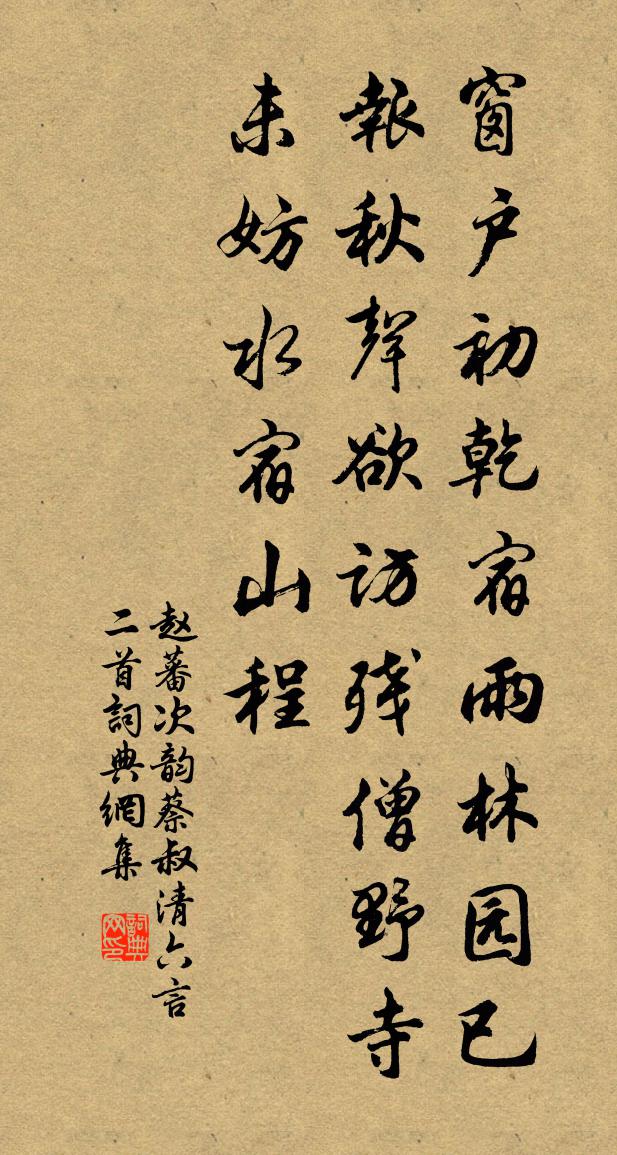 窗户初乾宿雨林园已
報秋聲欲訪残僧野寺
未妨水宿山程
赵蕃次韵蔡叔清六言
二首詞典網集
詞典网印